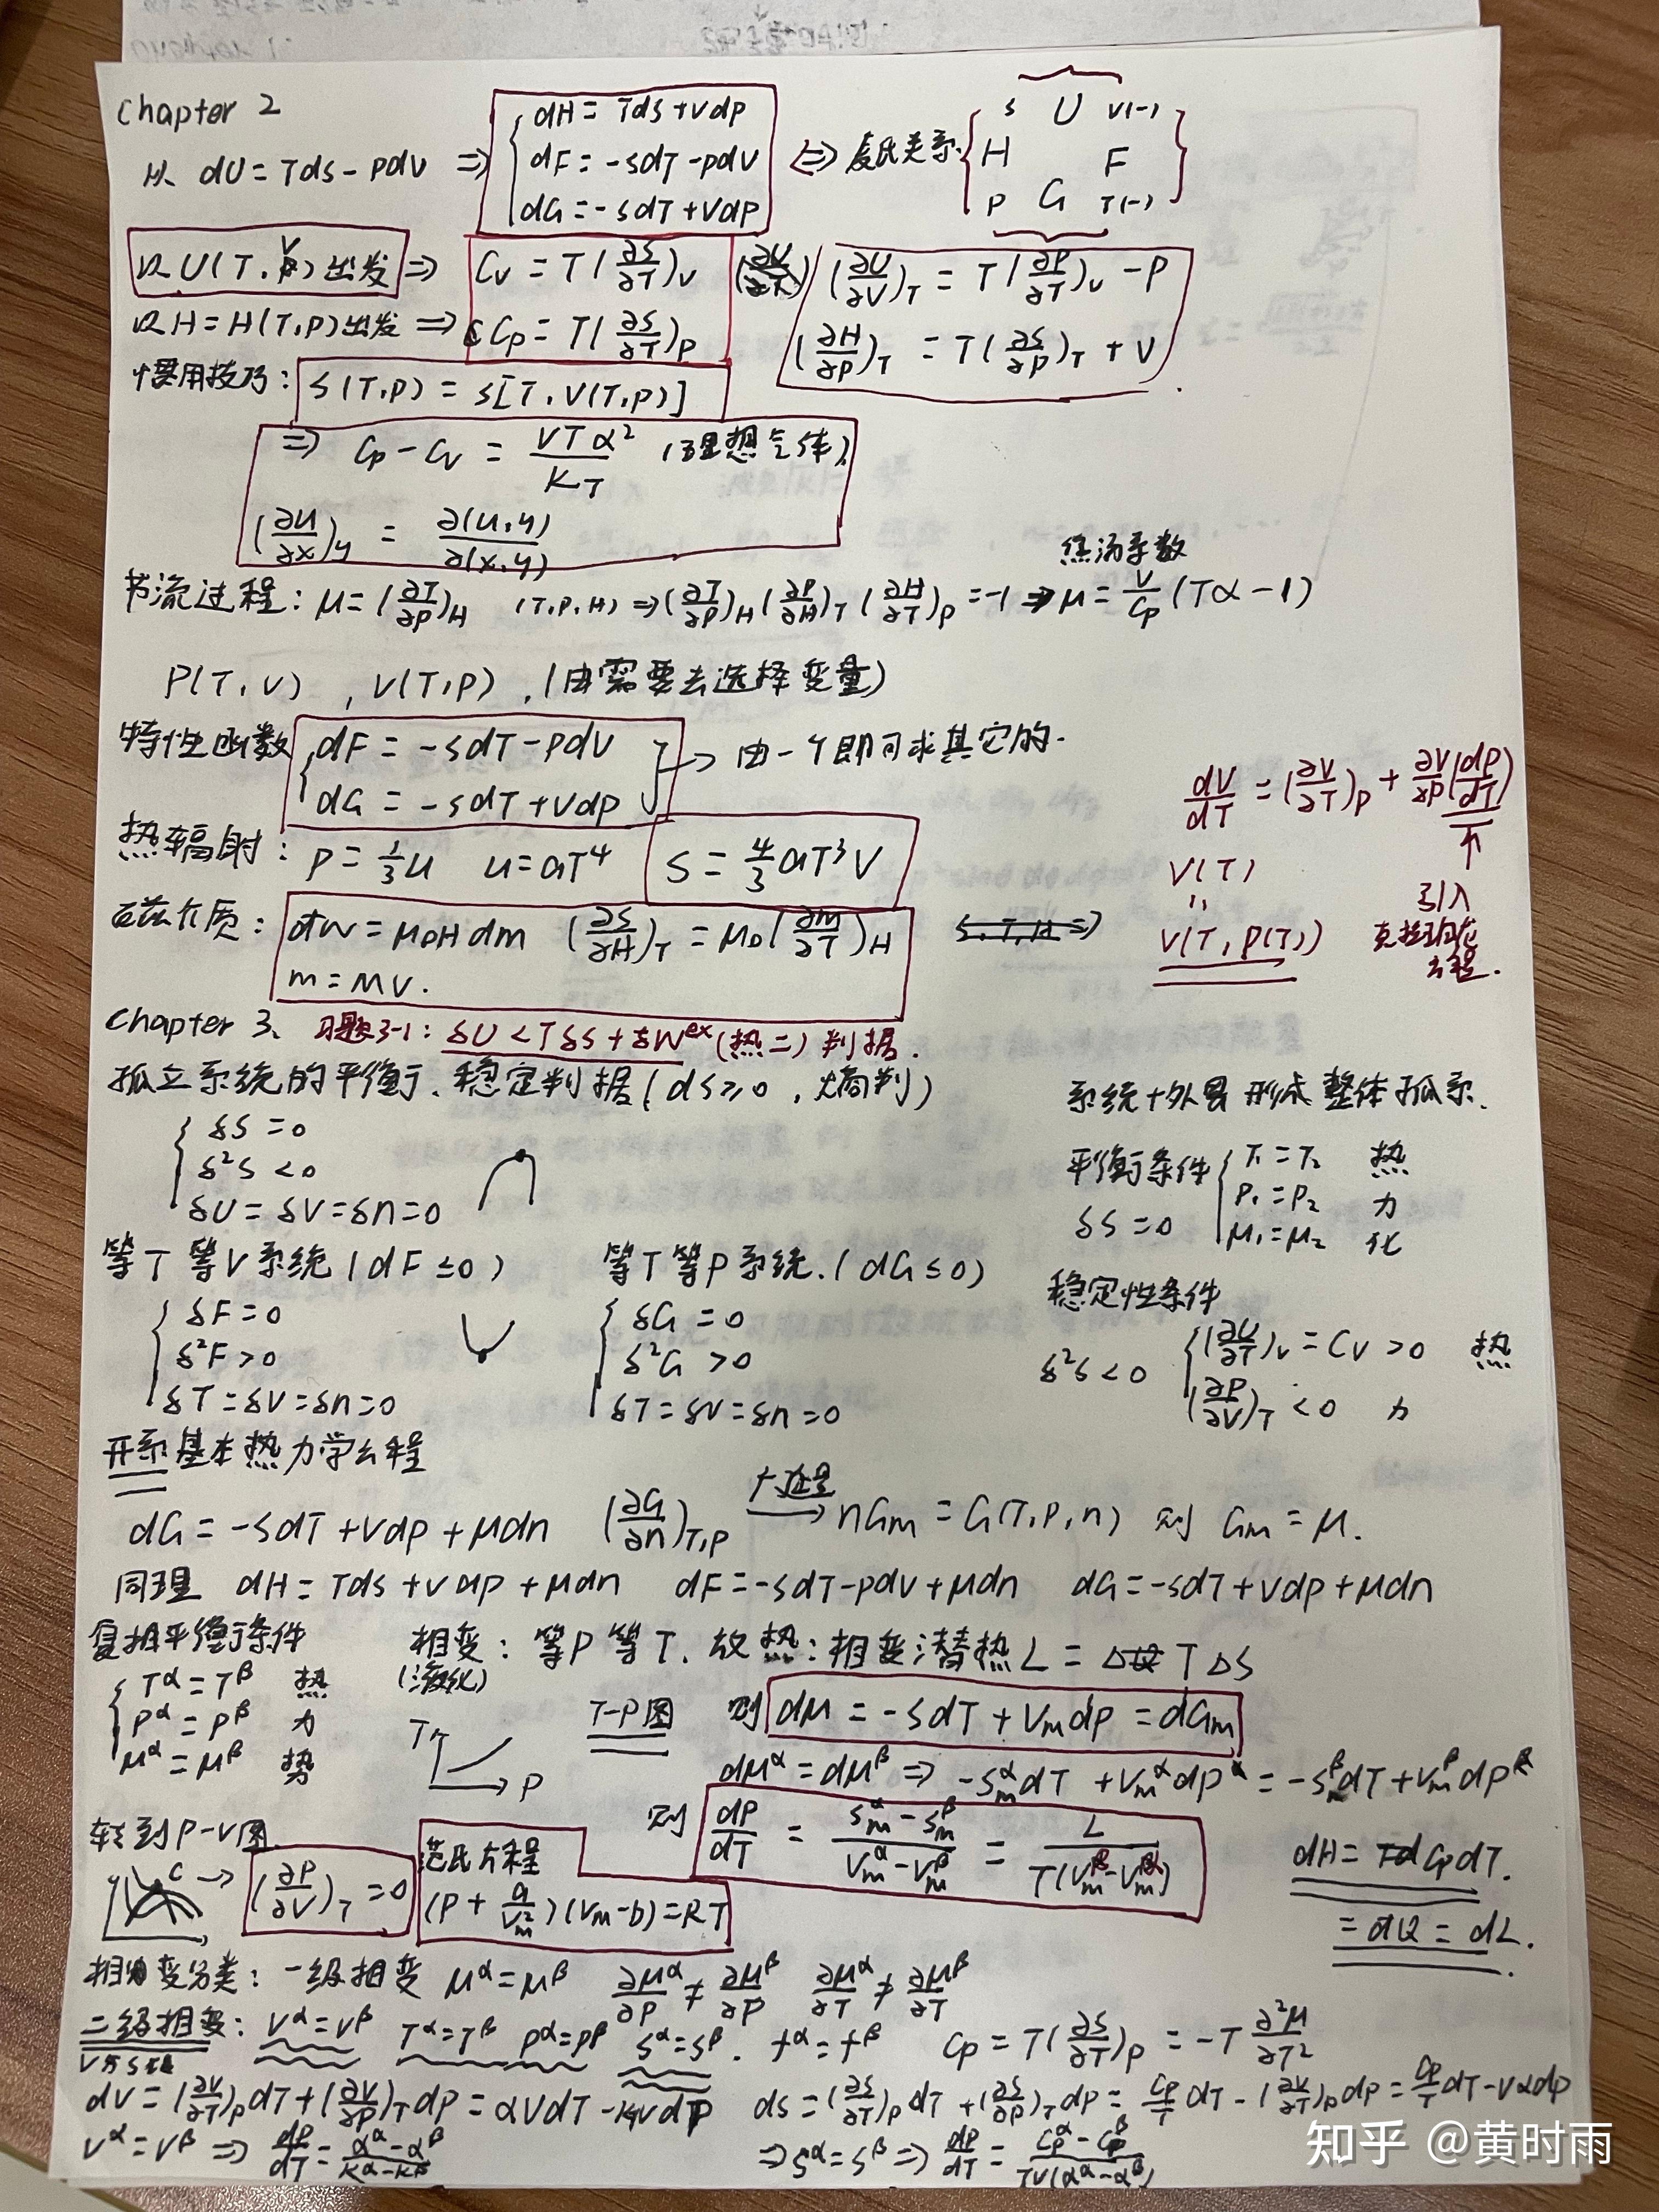 Chapter 2
从 dU = Tds - pdV ⇒ { dH = Tds + Vdp
dF = -sdT - pdV
dG = -sdT + Vdp
⇔ 麦氏关系 { S U V(-)
H F
P G T(-) }
以 U(T, V) 出发 ⇒ Cv = T(∂S/∂T)v (∂U/∂V)T = T(∂P/∂T)v - P
以 H = H(T,P) 出发 ⇒ Cp = T(∂S/∂T)p (∂H/∂P)T = T(∂S/∂P)T + V
惯用技巧: S(T,P) = S[T, V(T,P)]
⇒ Cp - Cv = VTα²/KT (理想气体)
(∂u/∂x)y = ∂(u,y)/∂(x,y)
焦汤系数
节流过程: μ = (∂T/∂P)H (T,P,H) ⇒ (∂T/∂P)H (∂P/∂H)T (∂H/∂T)P = -1 ⇒ μ = V/Cp (Tα - 1)
P(T,V), V(T,P), (由需要去选择变量)
特性函数 { dF = -sdT - pdV
dG = -sdT + Vdp } → 由一个即可求其它的.
热辐射: P = 1/3 u u = aT⁴ S = 4/3 aT³V
磁介质: đW = μ₀H dm (∂S/∂H)T = μ₀(∂m/∂T)H
m = MV.
dV/dT = (∂V/∂T)p + ∂V/∂P (dP/dT)
↑
V(T)
"
V(T, P(T))
引入
克拉珀龙
方程.
Chapter 3、 习题3-1: δU < TδS + đW^ex (热二) 判据.
孤立系统的平衡、稳定判据 (dS ≥ 0, 熵判)
{ δS = 0
δ²S < 0
δU = δV = δn = 0
系统+外界形成整体孤系.
平衡条件 { T₁ = T₂ 热
δS = 0 P₁ = P₂ 力
μ₁ = μ₂ 化
等T等V系统 (dF ≤ 0)
{ δF = 0
δ²F > 0
δT = δV = δn = 0
等T等P系统. (dG ≤ 0)
{ δG = 0
δ²G > 0
δT = δV = δn = 0
稳定性条件
δ²S < 0 { (∂U/∂T)v = Cv > 0 热
(∂P/∂V)T < 0 力
开系基本热力学方程
dG = -sdT + Vdp + μdn (∂G/∂n)T,P 广延量→ nGm = G(T,P,n) 则 Gm = μ.
同理 dH = Tds + Vdp + μdn dF = -sdT - pdv + μdn dG = -sdT + Vdp + μdn
复相平衡条件
{ T^α = T^β 热
P^α = P^β 力
μ^α = μ^β 势
相变: 等P等T. 放热: 相变潜热 L = TΔS
(液化)
T P
T-P图 则 dμ = -sdT + Vmdp = dGm
dμ^α = dμ^β ⇒ -Sm^α dT + Vm^α dP^α = -Sm^β dT + Vm^β dP^β
则 dP/dT = (Sm^α - Sm^β)/(Vm^α - Vm^β) = L/T(Vm^β - Vm^α)
转到P-V图
C → (∂P/∂V)T = 0
范氏方程
(P + a/Vm²)(Vm - b) = RT
dH = CpdT.
= dQ = dL.
相变分类: 一级相变 μ^α = μ^β ∂μ^α/∂P ≠ ∂μ^β/∂P ∂μ^α/∂T ≠ ∂μ^β/∂T
二级相变: V^α = V^β T^α = T^β P^α = P^β S^α = S^β. f^α = f^β Cp = T(∂S/∂T)P = -T ∂²μ/∂T²
dV = (∂V/∂T)P dT + (∂V/∂P)T dP = αVdT - KTVdP ds = (∂S/∂T)P dT + (∂S/∂P)T dP = Cp/T dT - (∂V/∂T)P dP = Cp/T dT - Vαdp
V^α = V^β ⇒ dP/dT = (α^α - α^β)/(K^α - K^β) ⇒ S^α = S^β ⇒ dP/dT = (Cp^α - Cp^β)/TV(α^α - α^β)
知乎 @黄时雨